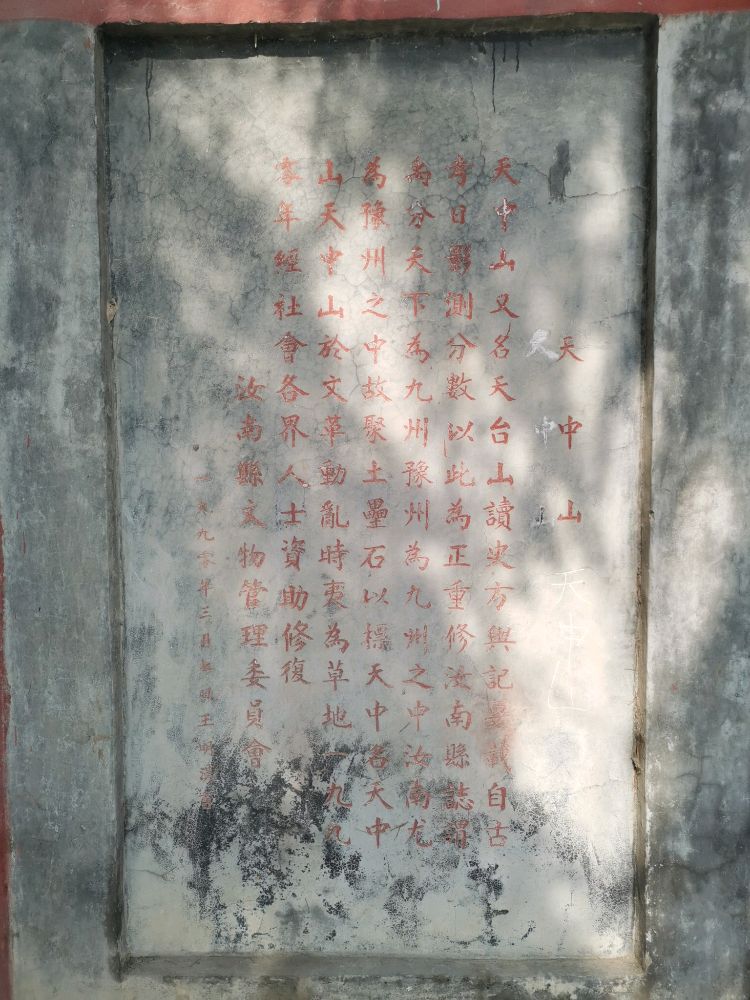 天中山
天中山
天中山又名天台山讀史方輿記要載自古
考日影測分數以此為正重修汝南縣誌謂
禹分天下為九州豫州為九州之中汝南尤
為豫州之中故聚土壘石以標天中名天中
山天中山於文革動亂時夷為草地一九九
零年經社會各界人士資助修復
汝南縣文物管理委員會
一九九零年三月 王